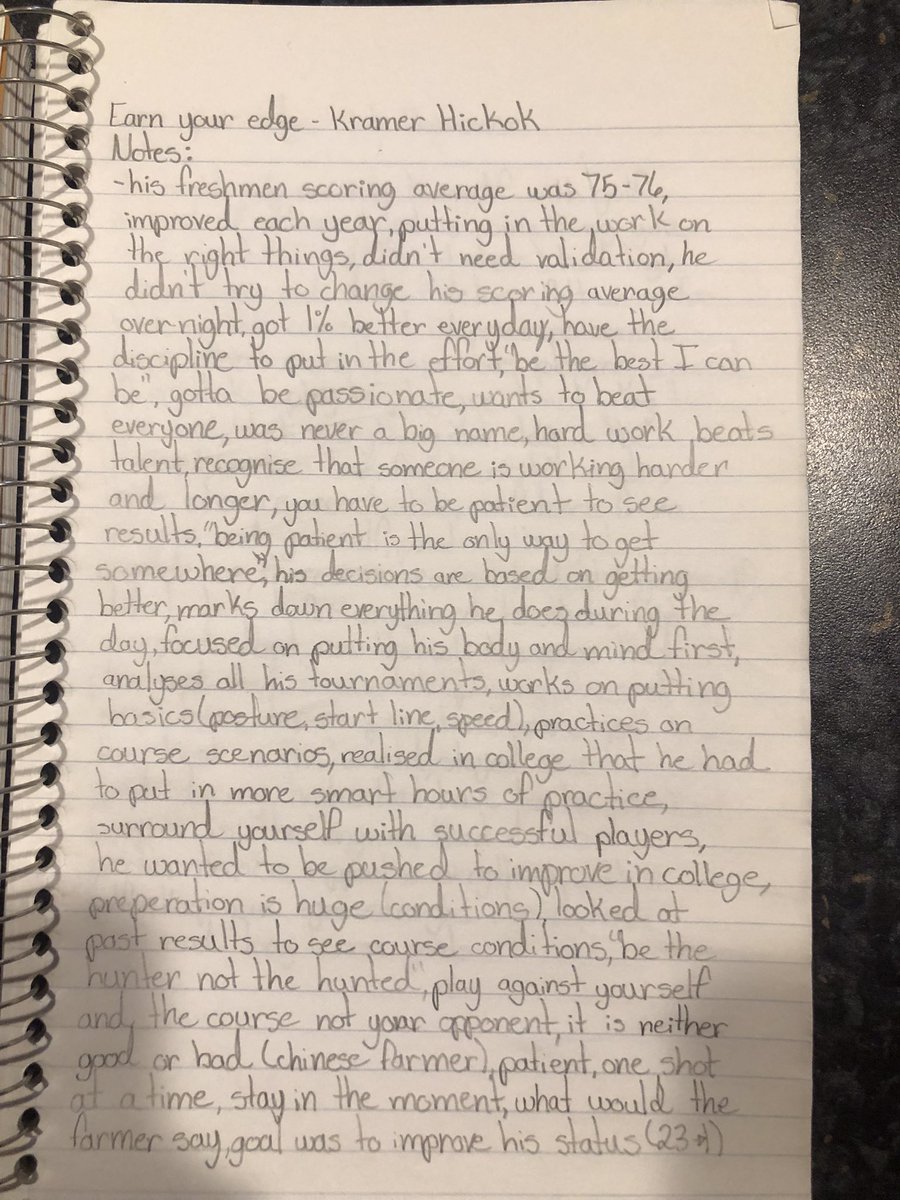 Earn your edge - Kramer Hickok
Notes:
-his freshmen scoring average was 75-76,
improved each year, putting in the work on
the right things, didn't need validation, he
didn't try to change his scoring average
over-night, got 1% better everyday, have the
discipline to put in the effort, "be the best I can
be", gotta be passionate, wants to beat
everyone, was never a big name, hard work beats
talent, recognise that someone is working harder
and longer, you have to be patient to see
results, "being patient is the only way to get
somewhere", his decisions are based on getting
better, marks down everything he does during the
day, focused on putting his body and mind first,
analyses all his tournaments, works on putting
basics (posture, start line, speed), practices on
course scenarios, realised in college that he had
to put in more smart hours of practice,
surround yourself with successful players,
he wanted to be pushed to improve in college,
preperation is huge (conditions), looked at
past results to see course conditions, "be the
hunter not the hunted", play against yourself
and, the course not your opponent, it is neither
good or bad (chinese farmer), patient, one shot
at a time, stay in the moment, what would the
farmer say, goal was to improve his status